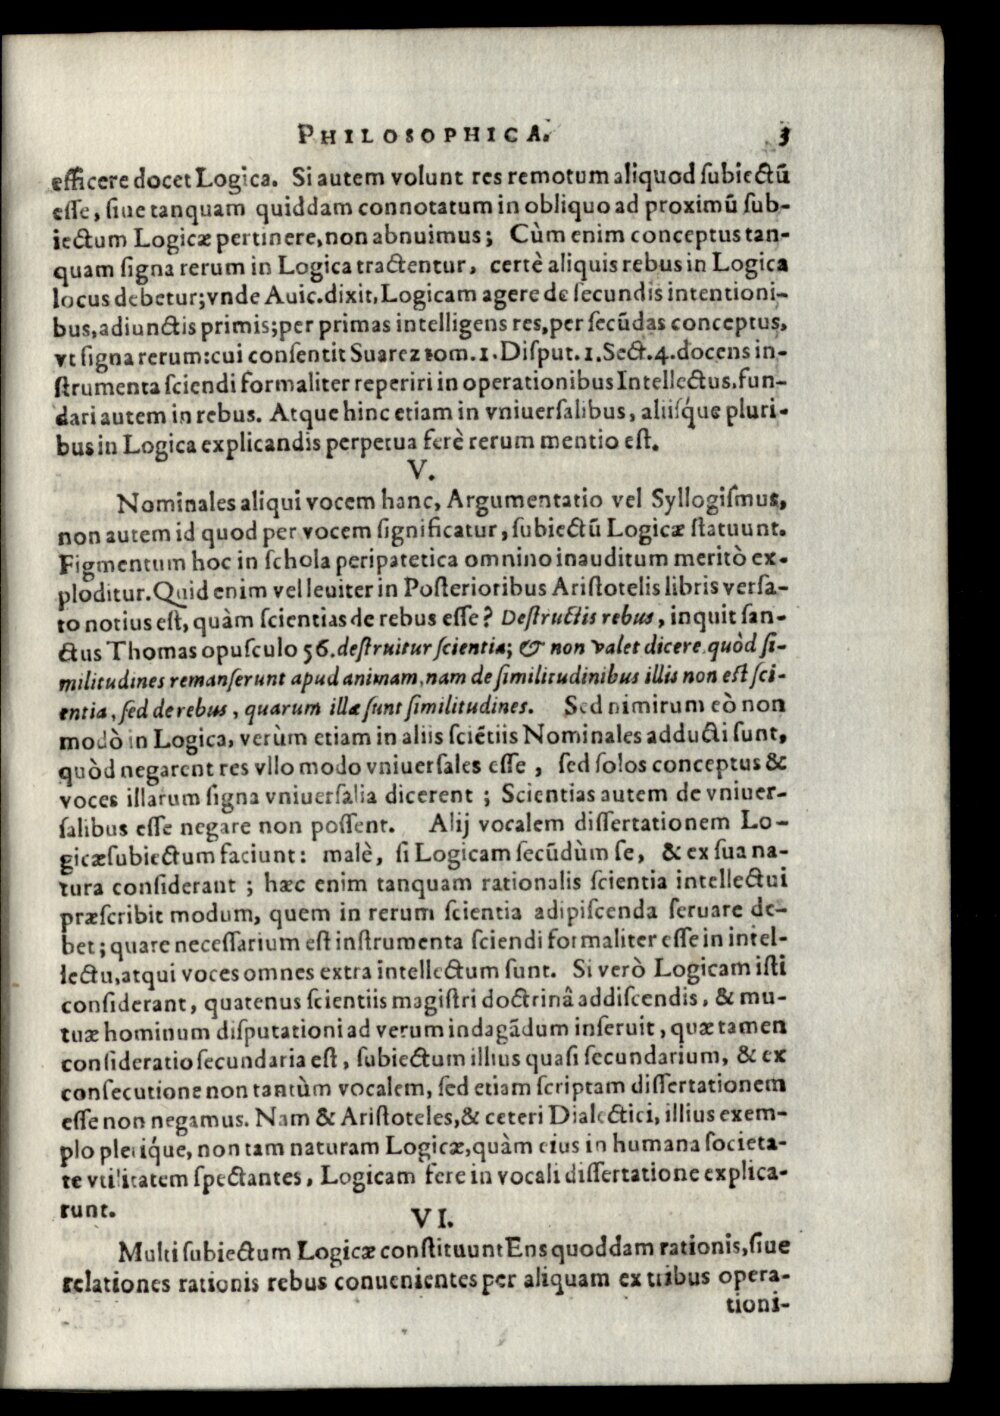 PHILOSOPHICA. 3
efficere docet Logica. Si autem volunt res remotum aliquod ſubiectū
eſſe, ſiue tanquam quiddam connotatum in obliquo ad proximū ſub-
iectum Logicæ pertinere, non abnuimus; Cùm enim conceptus tan-
quam ſigna rerum in Logica tractentur, certè aliquis rebus in Logica
locus debetur; vnde Auic. dixit, Logicam agere de ſecundis intentioni-
bus, adiunctis primis; per primas intelligens res, per ſecūdas conceptus,
vt ſigna rerum: cui conſentit Suarez tom. 1. Diſput. 1. Sect. 4. docens in-
ſtrumenta ſciendi formaliter reperiri in operationibus Intellectus, fun-
dari autem in rebus. Atque hinc etiam in vniuerſalibus, aliiſq́ue pluri-
bus in Logica explicandis perpetua ferè rerum mentio eſt.
V.
Nominales aliqui vocem hanc, Argumentatio vel Syllogiſmus,
non autem id quod per vocem ſignificatur, ſubiectū Logicæ ſtatuunt.
Figmentum hoc in ſchola peripatetica omnino inauditum meritò ex-
ploditur. Quid enim vel leuiter in Poſterioribus Ariſtotelis libris verſa-
to notius eſt, quàm ſcientias de rebus eſſe? Deſtructis rebus, inquit ſan-
ctus Thomas opuſculo 56. deſtruitur ſcientia; & non valet dicere quòd ſi-
militudines remanſerunt apud animam, nam de ſimilitudinibus illis non eſt ſci-
entia, ſed de rebus, quarum illæ ſunt ſimilitudines. Sed nimirum eò non
modò in Logica, verùm etiam in aliis ſciētiis Nominales adducti ſunt,
quòd negarent res vllo modo vniuerſales eſſe, ſed ſolos conceptus &
voces illarum ſigna vniuerſalia dicerent; Scientias autem de vniuer-
ſalibus eſſe negare non poſſent. Alij vocalem diſſertationem Lo-
gicæ ſubiectum faciunt: malè, ſi Logicam ſecūdùm ſe, & ex ſua na-
tura conſiderant; hæc enim tanquam rationalis ſcientia intellectui
præſcribit modum, quem in rerum ſcientia adipiſcenda ſeruare de-
bet; quare neceſſarium eſt inſtrumenta ſciendi formaliter eſſe in intel-
lectu, atqui voces omnes extra intellectum ſunt. Si verò Logicam iſti
conſiderant, quatenus ſcientiis magiſtri doctrinâ addiſcendis, & mu-
tuæ hominum diſputationi ad verum indagādum inſeruit, quæ tamen
conſideratio ſecundaria eſt, ſubiectum illius quaſi ſecundarium, & ex
conſecutione non tantùm vocalem, ſed etiam ſcriptam diſſertationem
eſſe non negamus. Nam & Ariſtoteles, & ceteri Dialectici, illius exem-
plo pleriq́ue, non tam naturam Logicæ, quàm eius in humana ſocieta-
te vtilitatem ſpectantes, Logicam fere in vocali diſſertatione explica-
runt.
VI.
Multi ſubiectum Logicæ conſtituunt Ens quoddam rationis, ſiue
relationes rationis rebus conuenientes per aliquam ex tribus opera-
tioni-